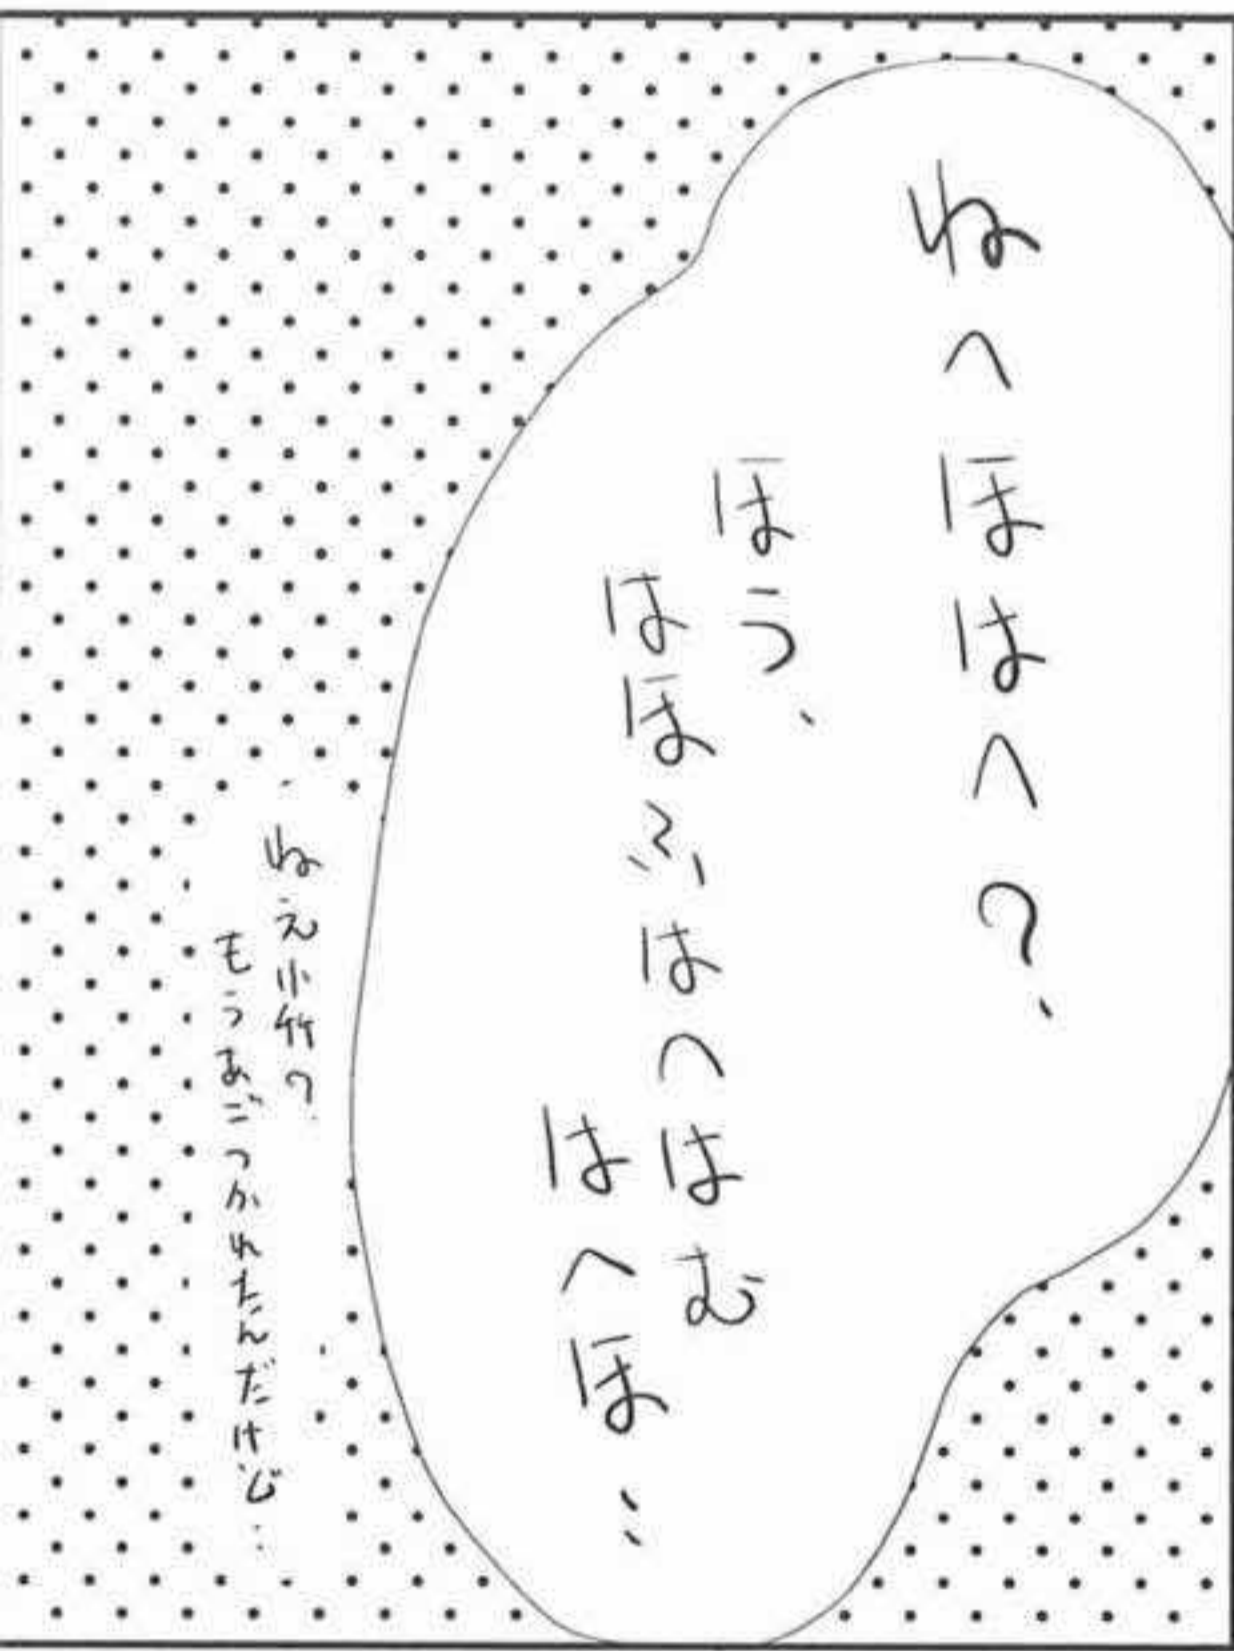 ねへほはへ？、
ほう、
はほふはへはむ
はへほ…
ねえ小竹？
もうあごつかれたんだけど…